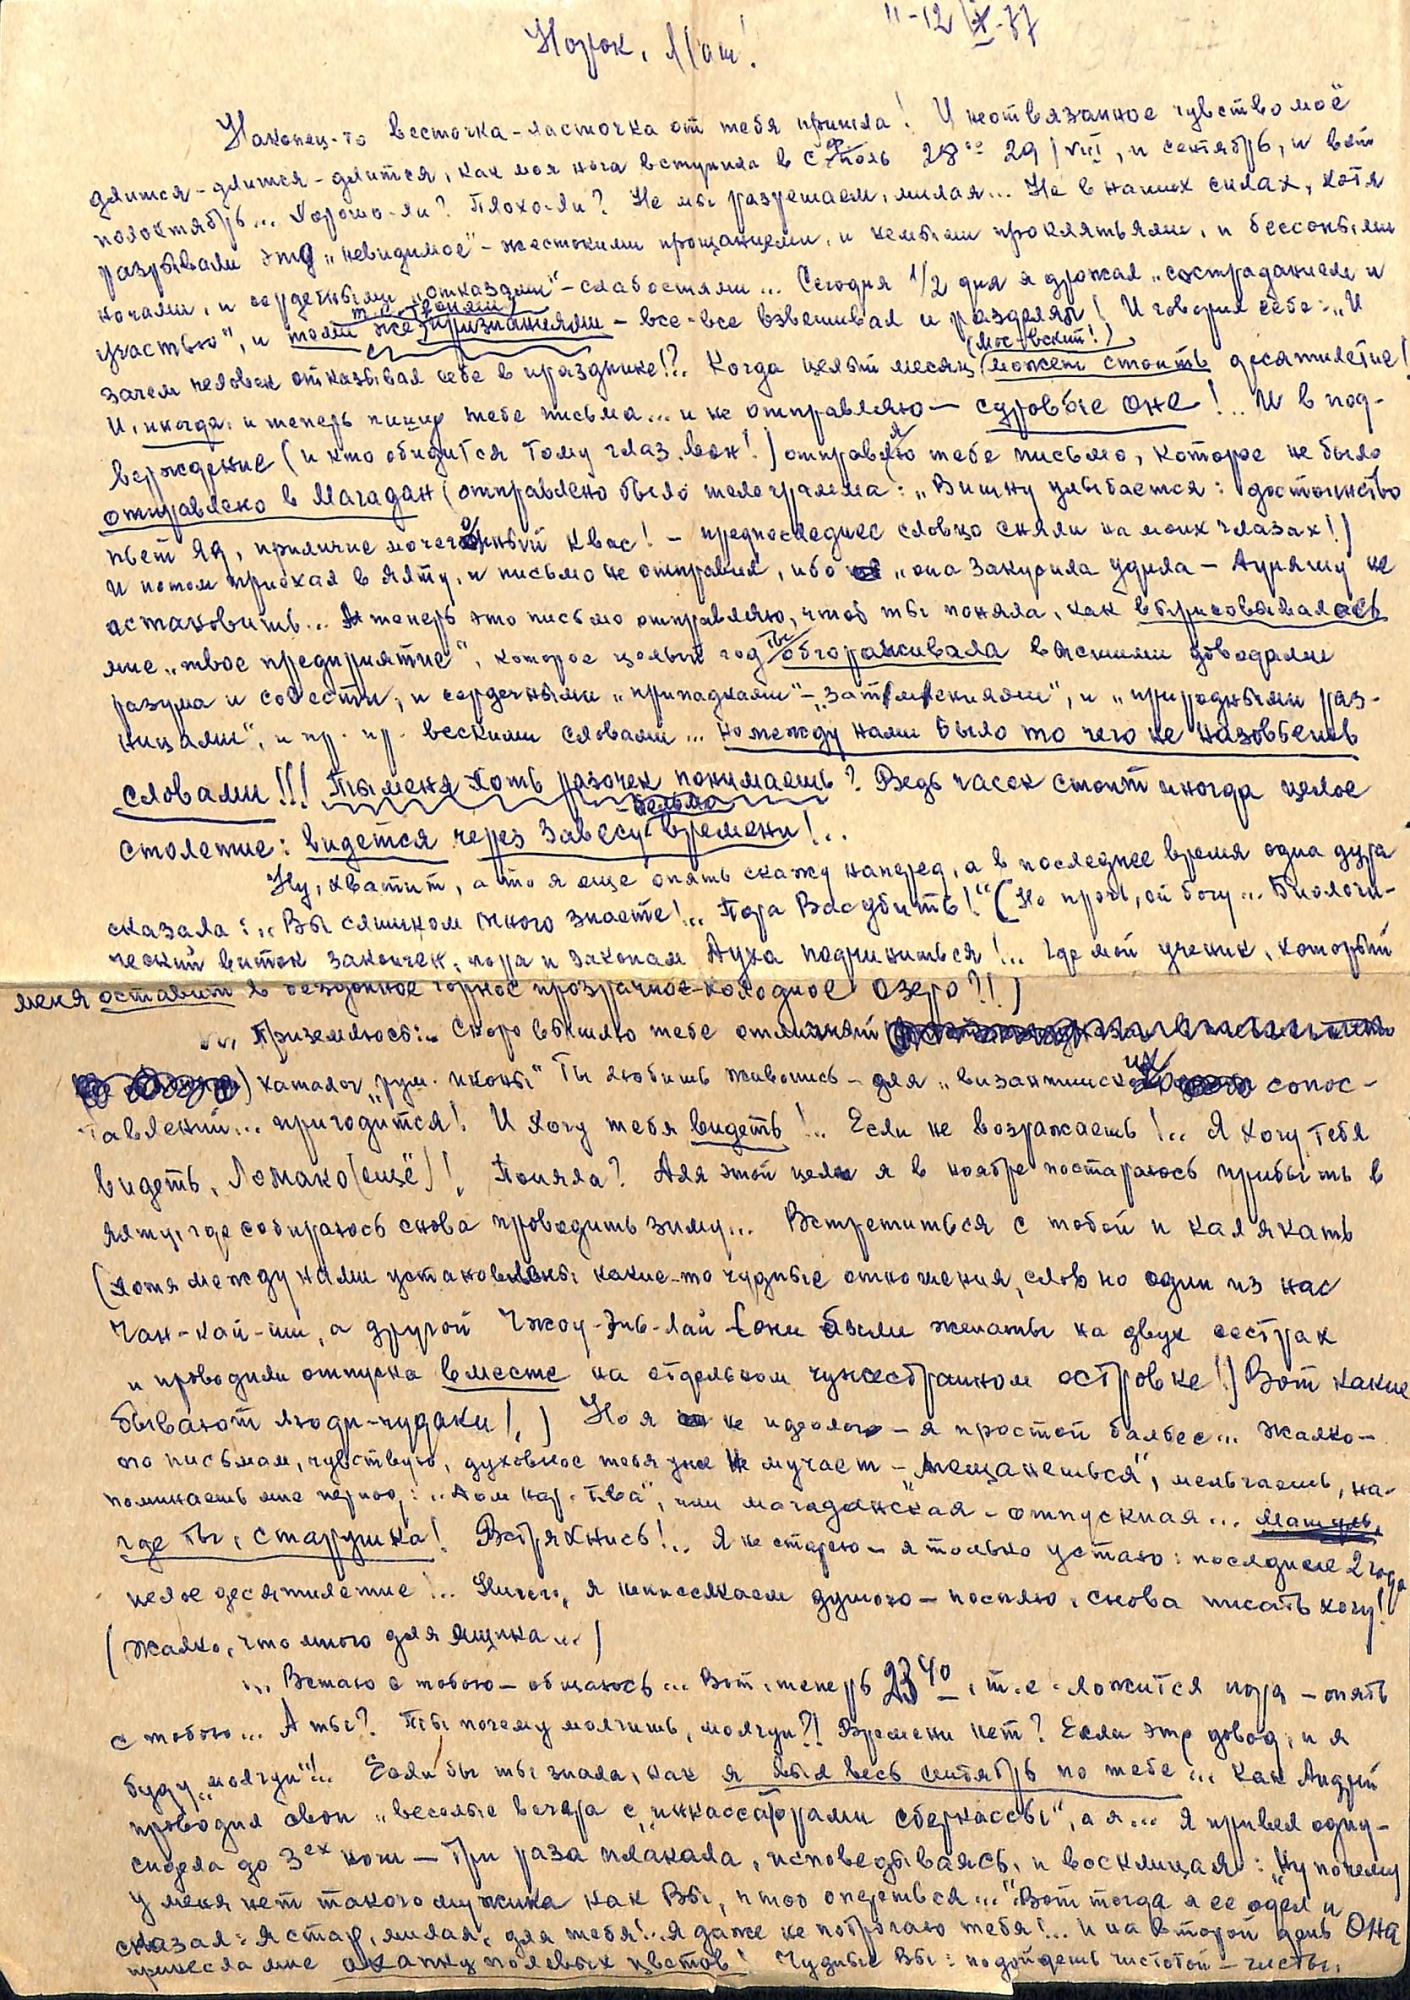 11-12/X-77
Норок, Маш!
Наконец-то весточка-ласточка от тебя пришла! И неотвязанное чувство моё
длится-длится-длится, как моя нога вступила в С/ф/поль 28-29/VIII, и сентябрь, и вот
полоктябрь... Хорошо-ли? Плохо-ли? Не мы разрешаем, милая... Не в наших силах, хотя
разрывали это „невидимое" - жестокими прощаниями, и немыми проклятьями, и бессонными
ночами, и сердечными „отказами" - слабостями... Сегодня 1/2 дня я дрожал „состраданием и
участью", и теми же признаниями - все-все взвешивал и разделял! И говорил себе: „И
зачем человек отказывал себе в празднике!?. Когда целый месяц (Мос-вский!) может стоить десятилетие!
И, иногда, и теперь пишу тебе письма... и не отправляю - суровые оне!.. И в под-
верждение (и кто обидится тому глаз вон!) отправляю тебе письмо, которое не было
отправлено в Магадан (отправлено было телеграмма: „Вишну улыбается: достоинство
пьет яд, приличие мочегонный квас! - предпоследнее словцо сняли на моих глазах!)
И потом приехал в Ялту, и письмо не отправил, ибо „она закусила удила - Дуряшу не
астановить... А теперь это письмо отправляю, чтоб ты поняла, как вырисовывалось
мне „твое предприятие", которое целый год ты обгораживала всякими доводами
разума и совести, и сердечными „припадками" - „затмениями", и „природными раз-
ницами", и пр. пр. вескими словами... но между нами было то чего не назовешь
словами!!! Ты меня хоть разочек понимаешь? Ведь часок стоит иногда целое
столетие: видется через завесу-бельмо времени!..
Ну, хватит, а то я еще опять скажу наперед, а в последнее время одна дура
сказала: „Вы слишком много знаете!.. Пора Вас убить!" (Не прочь, ей богу... Биологи-
ческий виток закончен, пора и законам Духа подчиниться!.. Где мой ученик, который
меня оставит в бездонное горное прозрачное-холодное озеро?!)
... Приземлюсь:.. Скоро вышлю тебе отличный
каталог „рум. иконы" Ты любишь живопись - для „византийских сопос-
тавлений... пригодится! И хочу тебя видеть!.. Если не возражаешь!.. Я хочу тебя
видеть, Ломако (ещё)! Поняла? Для этой цели я в ноябре постараюсь прибыть в
Ялту, где собираюсь снова проводить зиму... Встретиться с тобой и калякать
(хотя между нами установлены какие-то чудные отношения, словно один из нас
Чан-кай-ши, а другой Чжоу-Энь-лай - (они были женаты на двух сестрах
и проводили отпуска вместе на отдельном чужестранном островке!) Вот какие
бывают люди-чудаки!) Но я не идеолог - я простой балбес... Жалко-
по письмам, чувствую, духовное тебя уже не мучает - „мещанешься", мельчаешь, на-
поминаешь мне период: „Дом нар. т-ва", или магаданская - отпускная... Машуль,
где ты, старушка! Встряхнись!.. Я не старею - я только устаю: последние 2 года
целое десятилетие!.. Ничего, я неиссякаем душою - посплю, снова писать хочу!
(Жалко, что много для ящика...)
... Встаю с тобою - общаюсь... Вот, теперь 23⁴⁰, т.е. ложится пора - опять
с тобою... А ты? Ты почему молчишь, молчун?! Времени нет? Если это довод, и я
буду „молчун"!.. Если бы ты знала, как я выл весь октябрь по тебе... Как Андрей
проводил свои „веселые вечера с „инкассаторами сберкассы", а я... Я привел одну -
сидела до 3ех ночи - три раза плакала, исповедываясь, и восклицая: „Ну почему
у меня нет такого мужика как Вы, чтоб опереться..." Вот тогда я ее одел и
сказал: Я стар, милая, для тебя!.. Я даже не потрогаю тебя!.. И на второй день ОНА
принесла мне охапку полевых цветов! Чудные Вы: подойдешь чистотой - чисты,